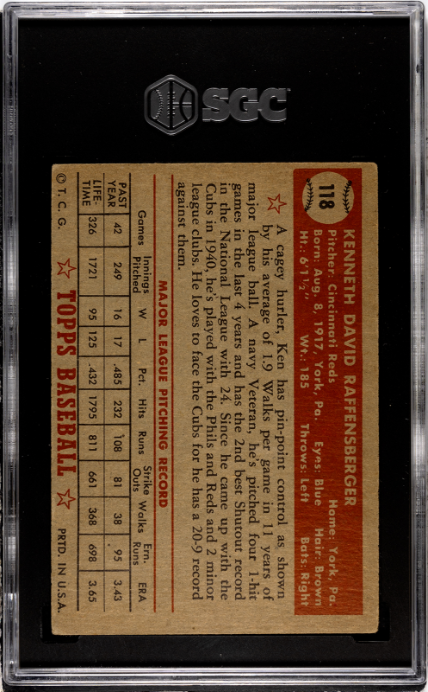 SGC
118
KENNETH DAVID RAFFENSBERGER
Pitcher: Cincinnati Reds Home: York, Pa.
Born: Aug. 8, 1917, York, Pa. Eyes: Blue Hair: Brown
Ht.: 6'1½" Wt.: 185 Throws: Left Bats: Right
A cagey hurler, Ken has pin-point control as shown
by his average of 1.9 Walks per game in 11 years of
major league ball. A navy Veteran, he's pitched four 1-hit
games in the last 4 years and has the 2nd best Shutout record
in the National League with 24. Since he came up with the
Cubs in 1940, he's played with the Phils and Reds and 2 minor
league clubs. He loves to face the Cubs for he has a 20-9 record
against them.
MAJOR LEAGUE PITCHING RECORD
Games Innings Pitched W L Pct. Hits Runs Strike Outs Walks Ern. Runs ERA
PAST YEAR 42 249 16 17 .485 232 108 81 38 95 3.43
LIFE-TIME 326 1721 95 125 .432 1795 811 661 368 698 3.65
© T. C. G. TOPPS BASEBALL PRTD. IN U.S.A.